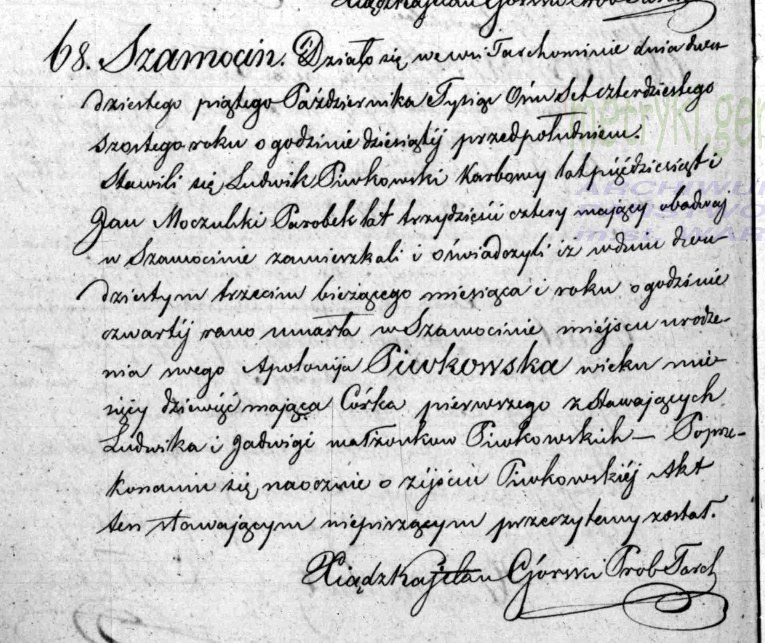 Xiądz Kajetan Górski Prob Tarch
68. Szamocin. Działo się we wsi Tarchominie dnia dwu
dziestego piątego Października Tysiąc Ośm Set czterdziestego
szóstego roku o godzinie dziesiątéj przedpołudniem.
Stawili się Ludwik Piwkowski Karbowy lat pięćdziesiąt i
Jan Moczulski Parobek lat trzydzieści cztery mający obadwaj
w Szamocinie zamieszkali i oświadczyli iż w dniu dwu
dziestym trzecim bieżącego miesiąca i roku o godzinie
czwartéj rano umarła w Szamocinie miejscu urodze-
nia swego Apolonija Piwkowska wieku mie-
sięcy dziewięć mająca Córka pierwszego z Stawających
Ludwika i Jadwigi małżonków Piwkowskich — Poprze-
konaniu się naocznie o zéjściu Piwkowskiéj Akt
ten stawającym niepiszącym przeczytany został.
Xiądz Kajetan Górski Prob Tarch
metryki.gen
ARCHIWUM
PAŃSTWO
m.st. WAR